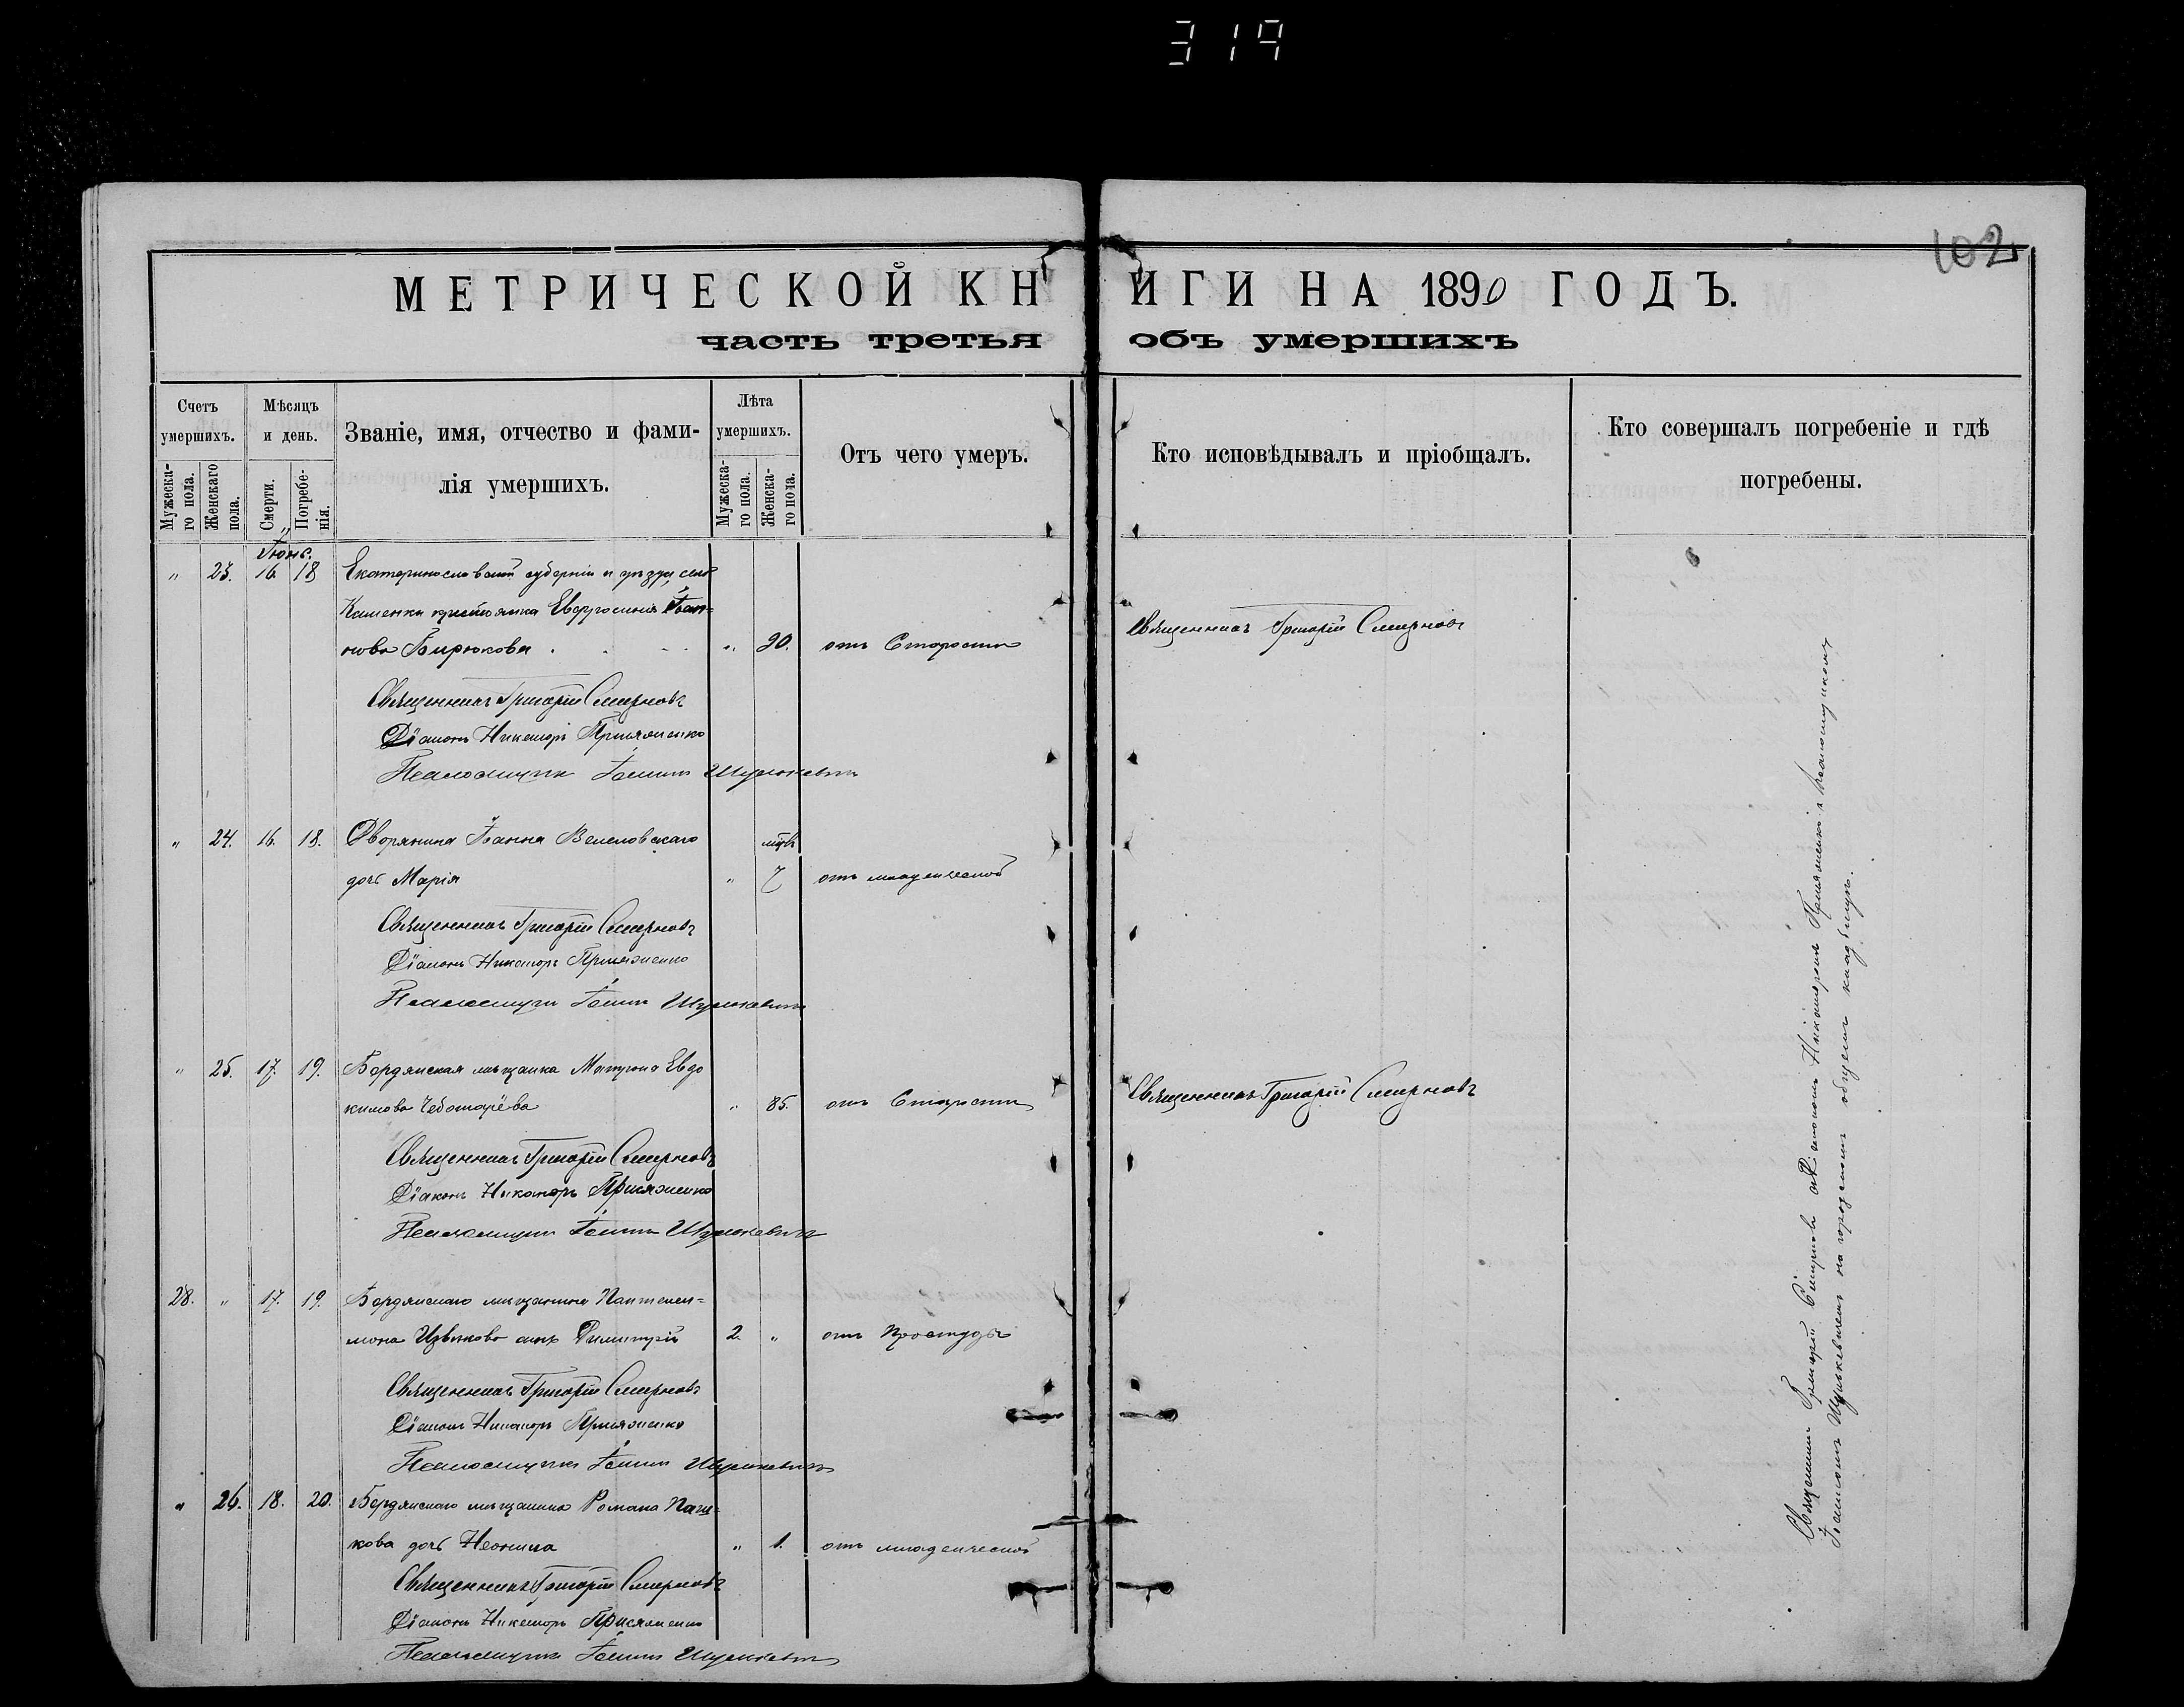 319
102
МЕТРИЧЕСКОЙ КНИГИ НА 1890 ГОДЪ.
часть третья объ умершихъ
Счетъ умершихъ.
Мужескаго пола.
Женскаго пола.
Мѣсяцъ и день.
Смерти.
Погребенія.
Званіе, имя, отчество и фамилія умершихъ.
Лѣта умершихъ.
Мужескаго пола.
Женскаго пола.
Отъ чего умеръ.
Кто исповѣдывалъ и пріобщалъ.
Кто совершалъ погребеніе и гдѣ погребены.
Іюнь.
" 23. 16. 18 Екатеринославской губерніи и уѣзда, села
Каменки крестьянка Евфросинія Іоан-
нова Бирюкова . . . . " 90. отъ Старости
Священникъ Григорій Смирновъ
Священникъ Григорій Смирновъ
Діаконъ Никаноръ Присяженко
Псаломщикъ Іоаннъ
" 24. 16. 18. Дворянина Іоанна Велеловскаго мѣсяц
дочь Марія " 7 отъ младенческой
Священникъ Григорій Смирновъ
Діаконъ Никаноръ Присяженко
Псаломщикъ Іоаннъ
" 25. 17. 19. Бердянская мѣщанка Матрона Евдо
кимова Чеботарёва " 85. отъ Старости
Священникъ Григорій Смирновъ
Священникъ Григорій Смирновъ
Діаконъ Никаноръ Присяженко
Псаломщикъ Іоаннъ
28. " 17. 19. Бердянскаго мѣщанина Пантелеи-
мона Извекова сынъ Димитрій 2. " отъ Простуды
Священникъ Григорій Смирновъ
Діаконъ Никаноръ Присяженко
Псаломщикъ Іоаннъ
" 26. 18. 20. Бердянскаго мѣщанина Романа Паш-
кова дочь Неонила " 1. отъ младенческой
Священникъ Григорій Смирновъ
Діаконъ Никаноръ Присяженко
Псаломщикъ Іоаннъ
Священникъ Григорій Смирновъ съ Діакономъ Никаноромъ Присяженко и псаломщикомъ
Іоанномъ на городскомъ общемъ кладбищѣ.